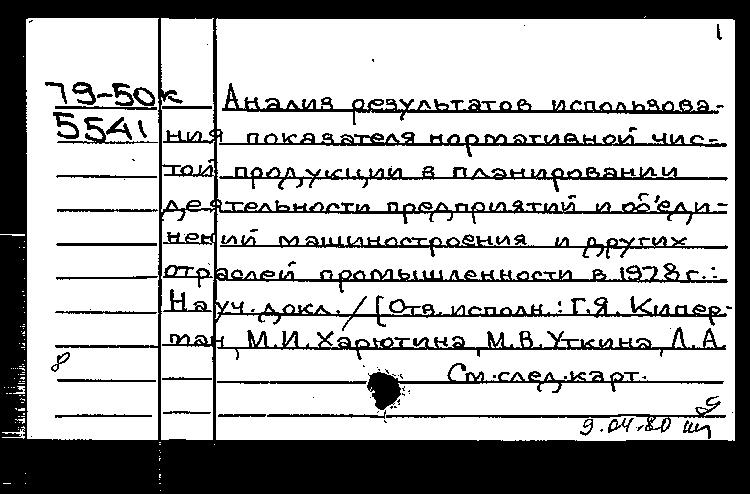 1
79-50к Анализ результатов использова-
5541 ния показателя нормативной чис-
той продукции в планировании
деятельности предприятий и объеди-
нений машиностроения и других
отраслей промышленности в 1978 г.:
Науч. докл. / [Отв. исполн.: Г.Я. Кипер-
ман, М.И. Харютина, М.В. Уткина, Л.А.
8
См. след. карт.
9.04.80